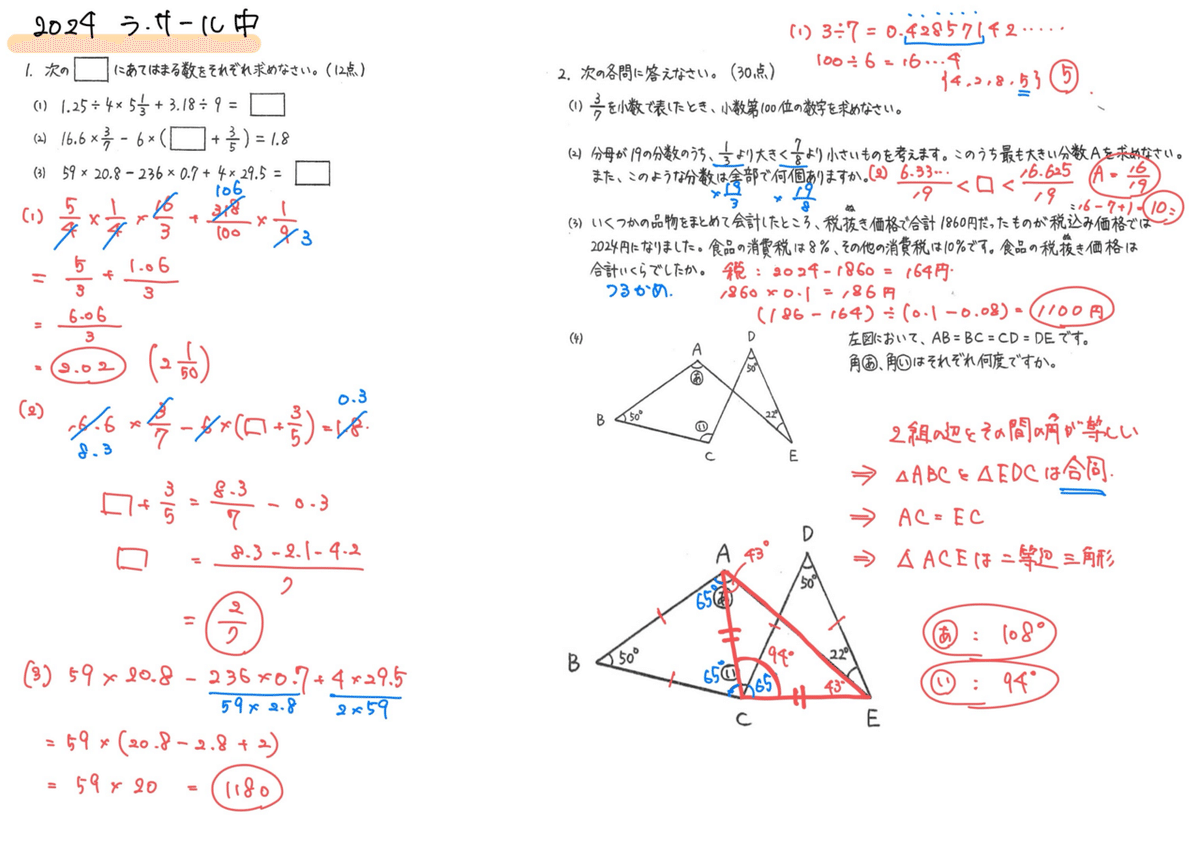 2024 ラ・サール中
1. 次の□にあてはまる数をそれぞれ求めなさい。(12点)
(1) 1.25÷4×5 1/3 + 3.18÷9 = □
(2) 16.6×3/7 - 6×(□ + 3/5) = 1.8
(3) 59×20.8-236×0.7+4×29.5 = □
(1) 5/4 × 1/4 × 16/3 + 318/100 × 1/9
106
3
= 5/3 + 1.06/3
= 6.06/3
= 2.02 (2 1/50)
(2) 16.6 × 3/7 - 6×(□ + 3/5) = 1.8
8.3
0.3
□ + 3/5 = 8.3/7 - 0.3
□ = 8.3-2.1-4.2/7
= 2/7
(3) 59×20.8 - 236×0.7 + 4×29.5
59×2.8 2×59
= 59×(20.8-2.8+2)
= 59×20 = 1180
(1) 3÷7 = 0.42857142……
100÷6 = 16…4
{4.2.8.5} ⑤
2. 次の各問に答えなさい。(30点)
(1) 3/7を小数で表したとき、小数第100位の数字を求めなさい。
(2) 分母が19の分数のうち、1/3より大きく7/8より小さいものを考えます。このうち最も大きい分数Aを求めなさい。
また、このような分数は全部で何個ありますか。
×19/3 ×19/8
(2) 6.33…/19 < □ < 16.625/19
A = 16/19
16-7+1=10
(3) いくつかの品物をまとめて会計したところ、税抜き価格で合計1860円だったものが税込み価格では
2024円になりました。食品の消費税は8%、その他の消費税は10%です。食品の税抜き価格は
合計いくらでしたか。
税：2024-1860=164円
つるかめ.
1860×0.1=186円
(186-164)÷(0.1-0.08)=1100円
(4)
左図において、AB=BC=CD=DEです。
角あ、角いはそれぞれ何度ですか。
A
D
50°
あ
B
50°
い
22°
C
E
2組の辺とその間の角が等しい
⇒ △ABCと△EDCは合同.
⇒ AC=EC
⇒ △ACEは二等辺三角形
あ：108°
い：94°
A
43°
D
50°
65°
あ
B
50°
94°
22°
65°
い
65
43°
C
E